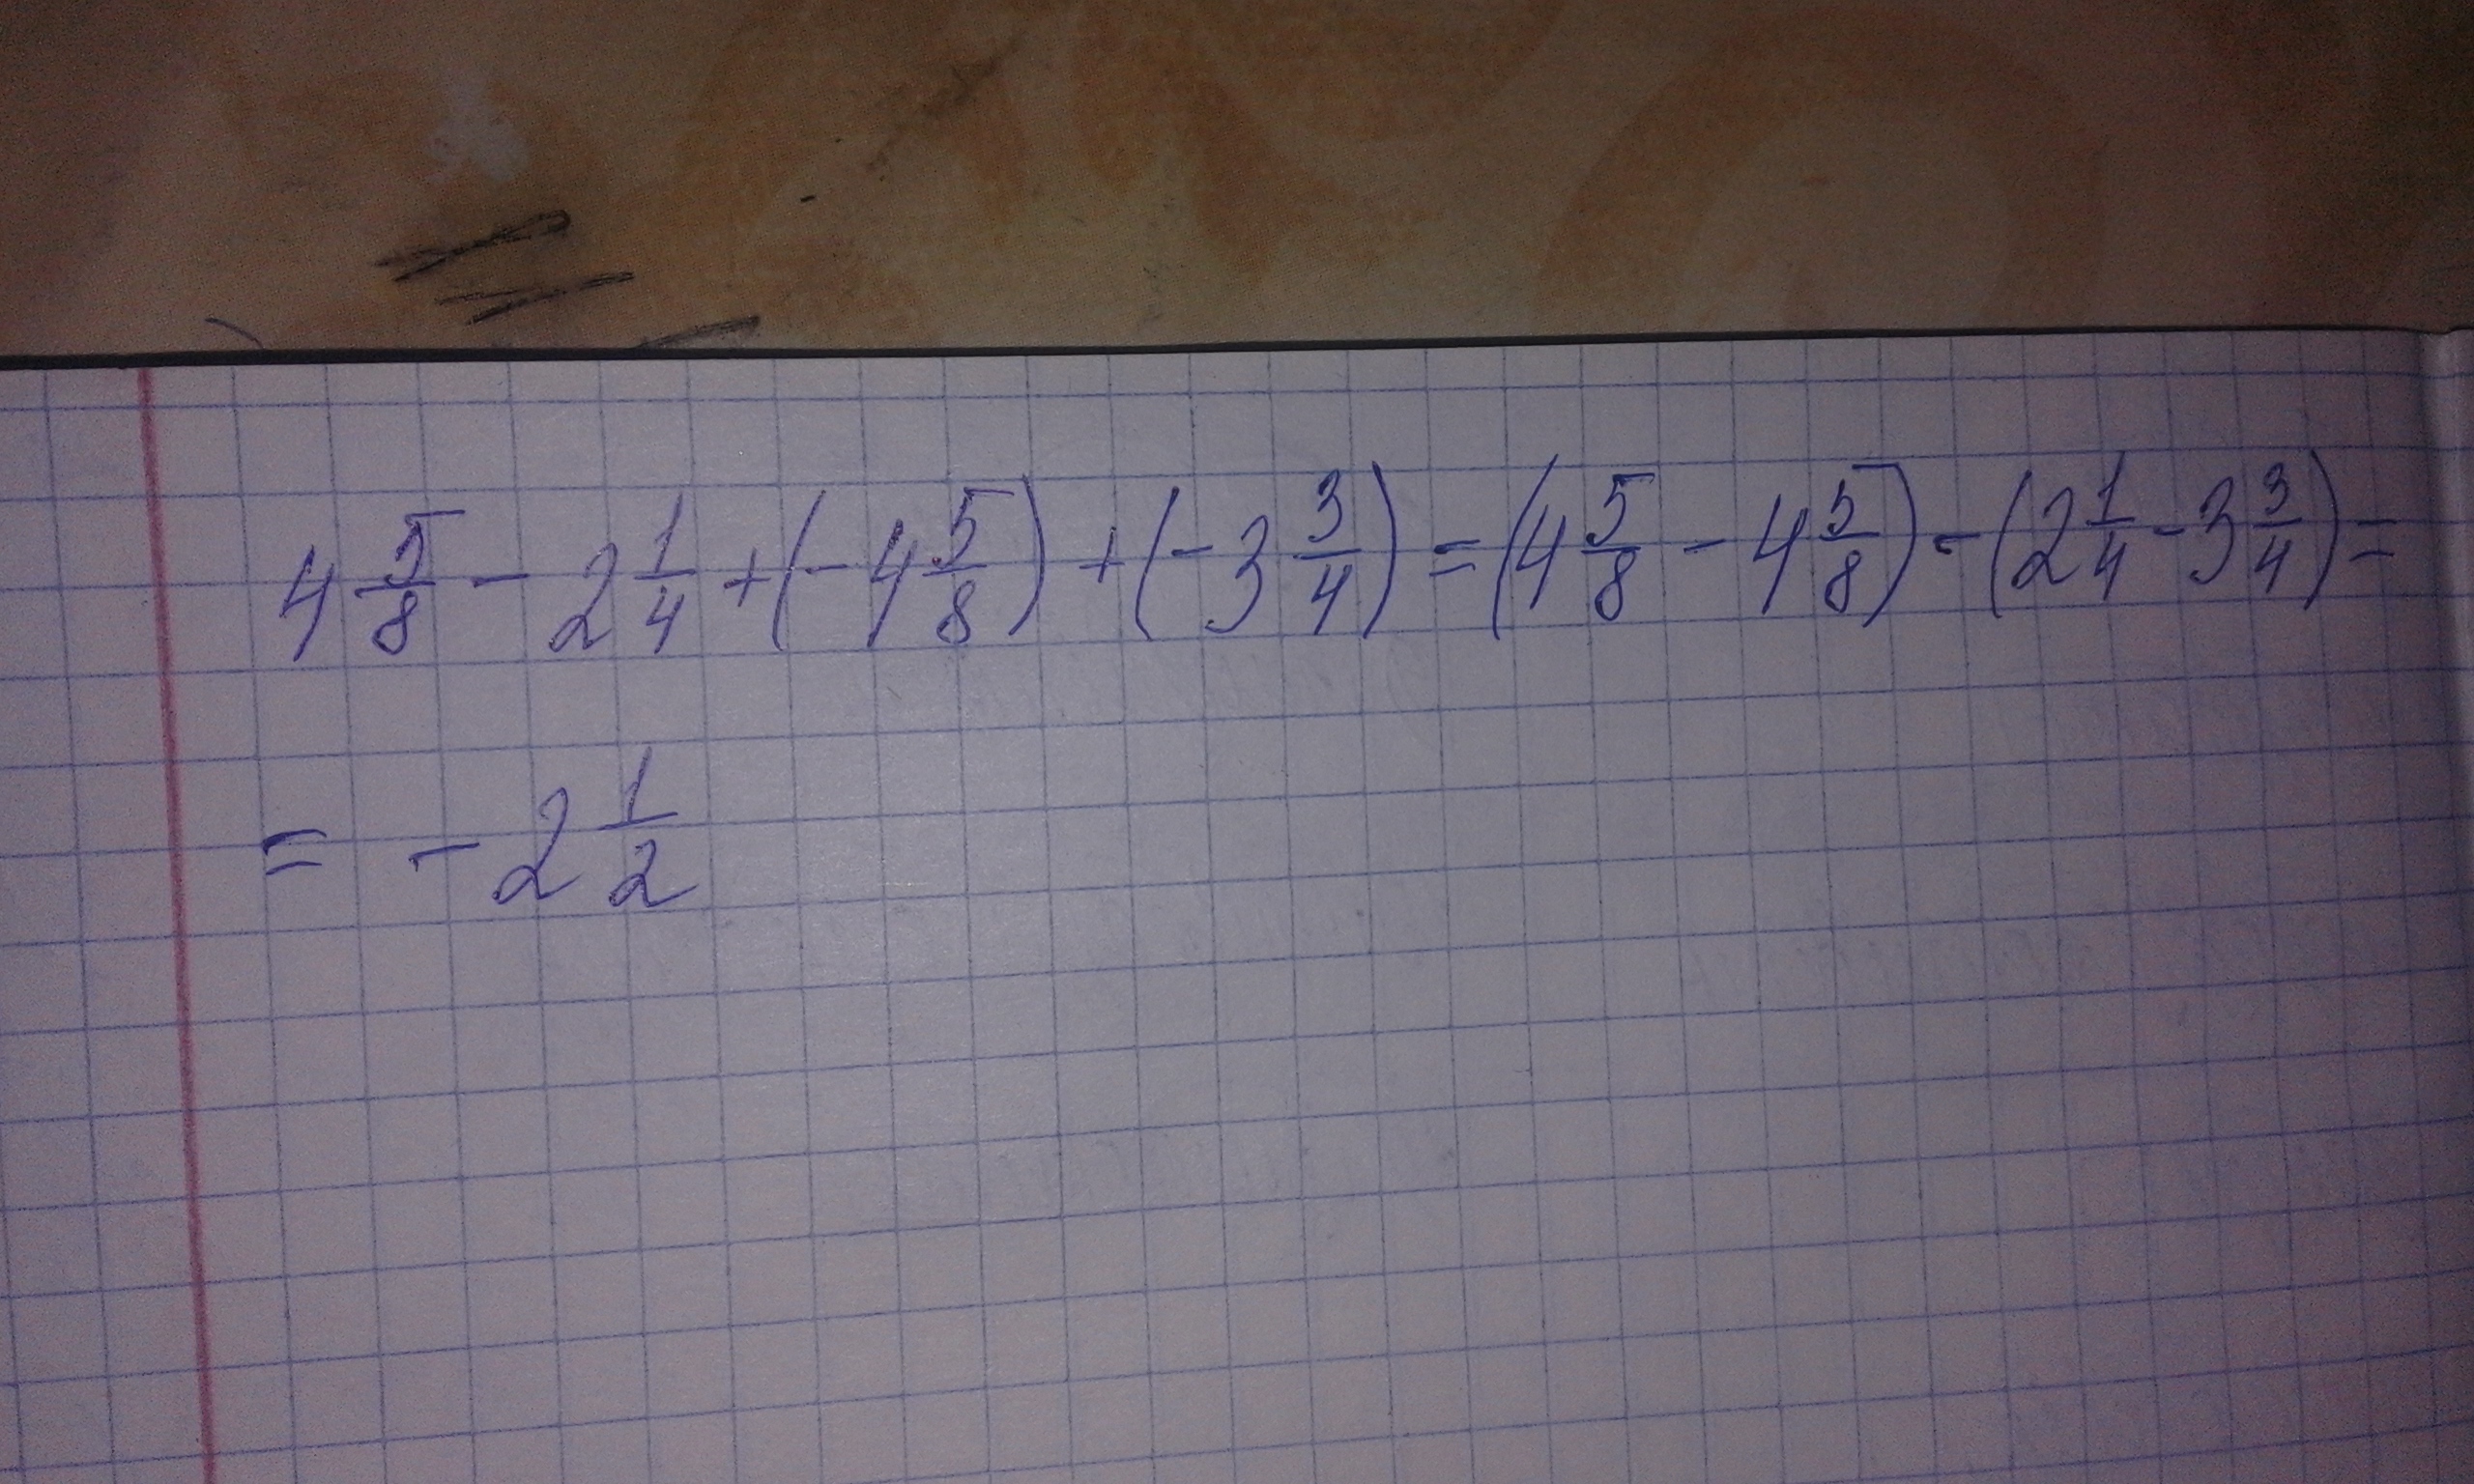 4 5/8 - 2 1/4 + (- 4 5/8) + (- 3 3/4) = (4 5/8 - 4 5/8) - (2 1/4 - 3 3/4) =
= - 2 1/2